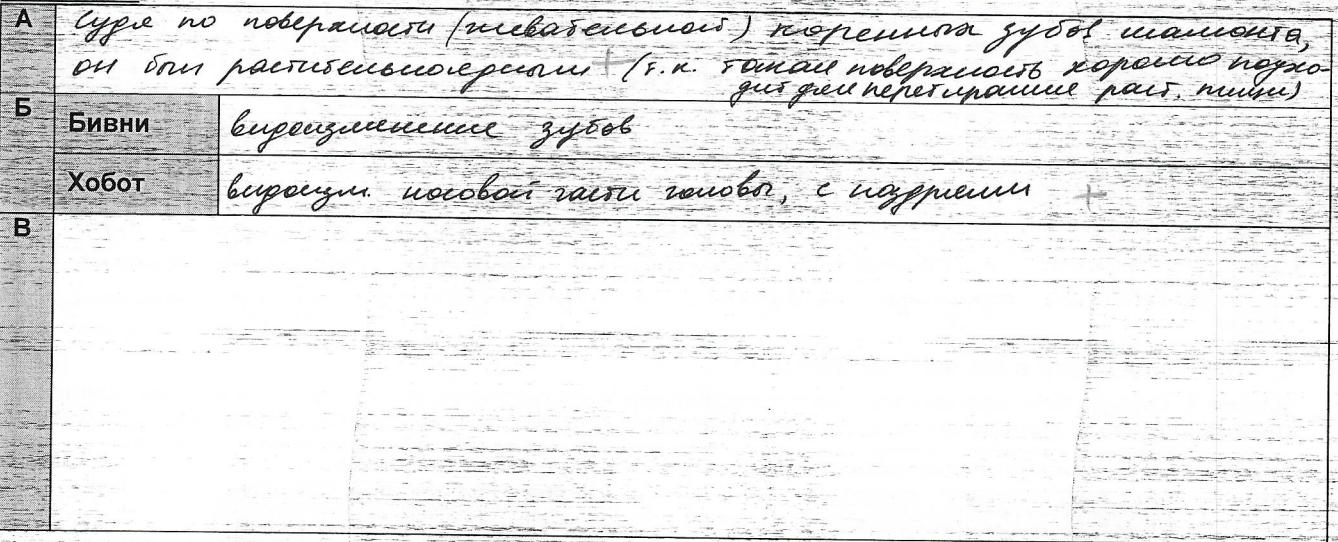 А Судя по поверхности (жевательной) коренных зубов мамонта,
он был растительноядным + (т.к. такая поверхность хорошо подхо-
дит для перетирание раст. пищи)
Б Бивни видоизменение зубов
Хобот видоизм. носовой части головы, с ноздрями +
В